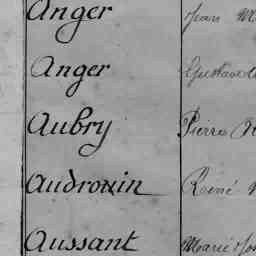 Anger Jean M
Anger Gustave
Aubry Pierre
Audrouin René
Aussant Marie